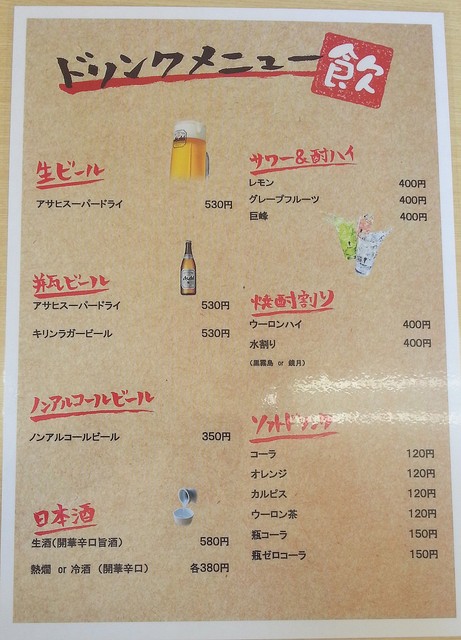 ドリンクメニュー 飲
生ビール
アサヒスーパードライ 530円
瓶ビール
アサヒスーパードライ 530円
キリンラガービール 530円
ノンアルコールビール
ノンアルコールビール 350円
日本酒
生酒(開華辛口旨酒) 580円
熱燗 or 冷酒 (開華辛口) 各380円
サワー&酎ハイ
レモン 400円
グレープフルーツ 400円
巨峰 400円
焼酎割り
ウーロンハイ 400円
水割り 400円
(黒霧島 or 鏡月)
ソフトドリンク
コーラ 120円
オレンジ 120円
カルピス 120円
ウーロン茶 120円
瓶コーラ 150円
瓶ゼロコーラ 150円